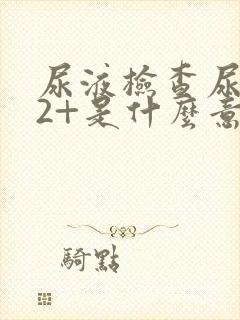 尿液檢查尿
2+是什麼意
騎點